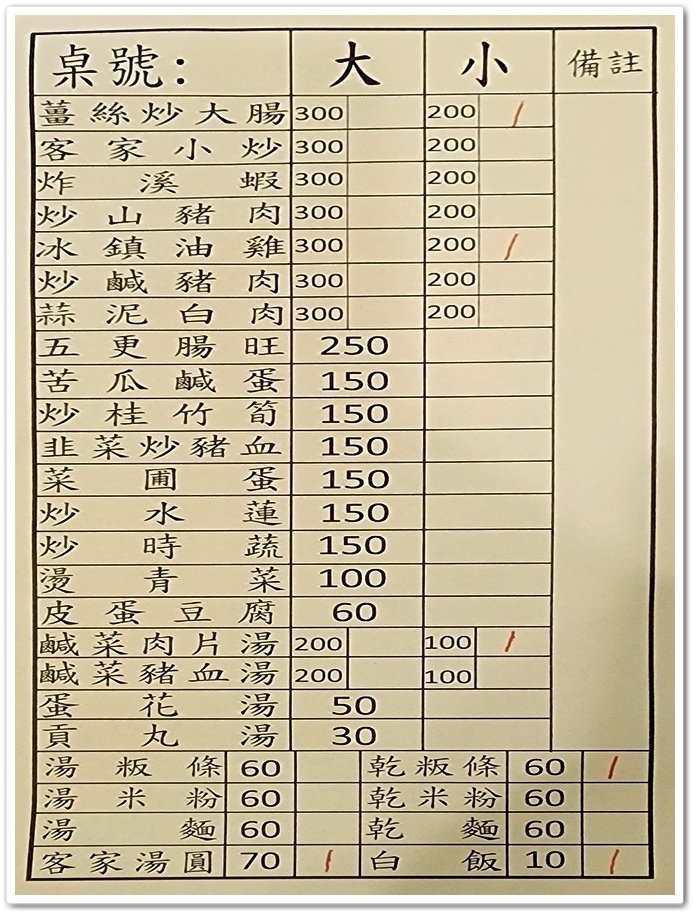 桌號: 大 小 備註
薑絲炒大腸 300 200 /
客家小炒 300 200
炸溪蝦 300 200
炒山豬肉 300 200
冰鎮油雞 300 200 /
炒鹹豬肉 300 200
蒜泥白肉 300 200
五更腸旺 250
苦瓜鹹蛋 150
炒桂竹筍 150
韭菜炒豬血 150
菜圃蛋 150
炒水蓮 150
炒時蔬 150
燙青菜 100
皮蛋豆腐 60
鹹菜肉片湯 200 100 /
鹹菜豬血湯 200 100
蛋花湯 50
貢丸湯 30
湯粄條 60 乾粄條 60 /
湯米粉 60 乾米粉 60
湯麵 60 乾麵 60
客家湯圓 70 / 白飯 10 /